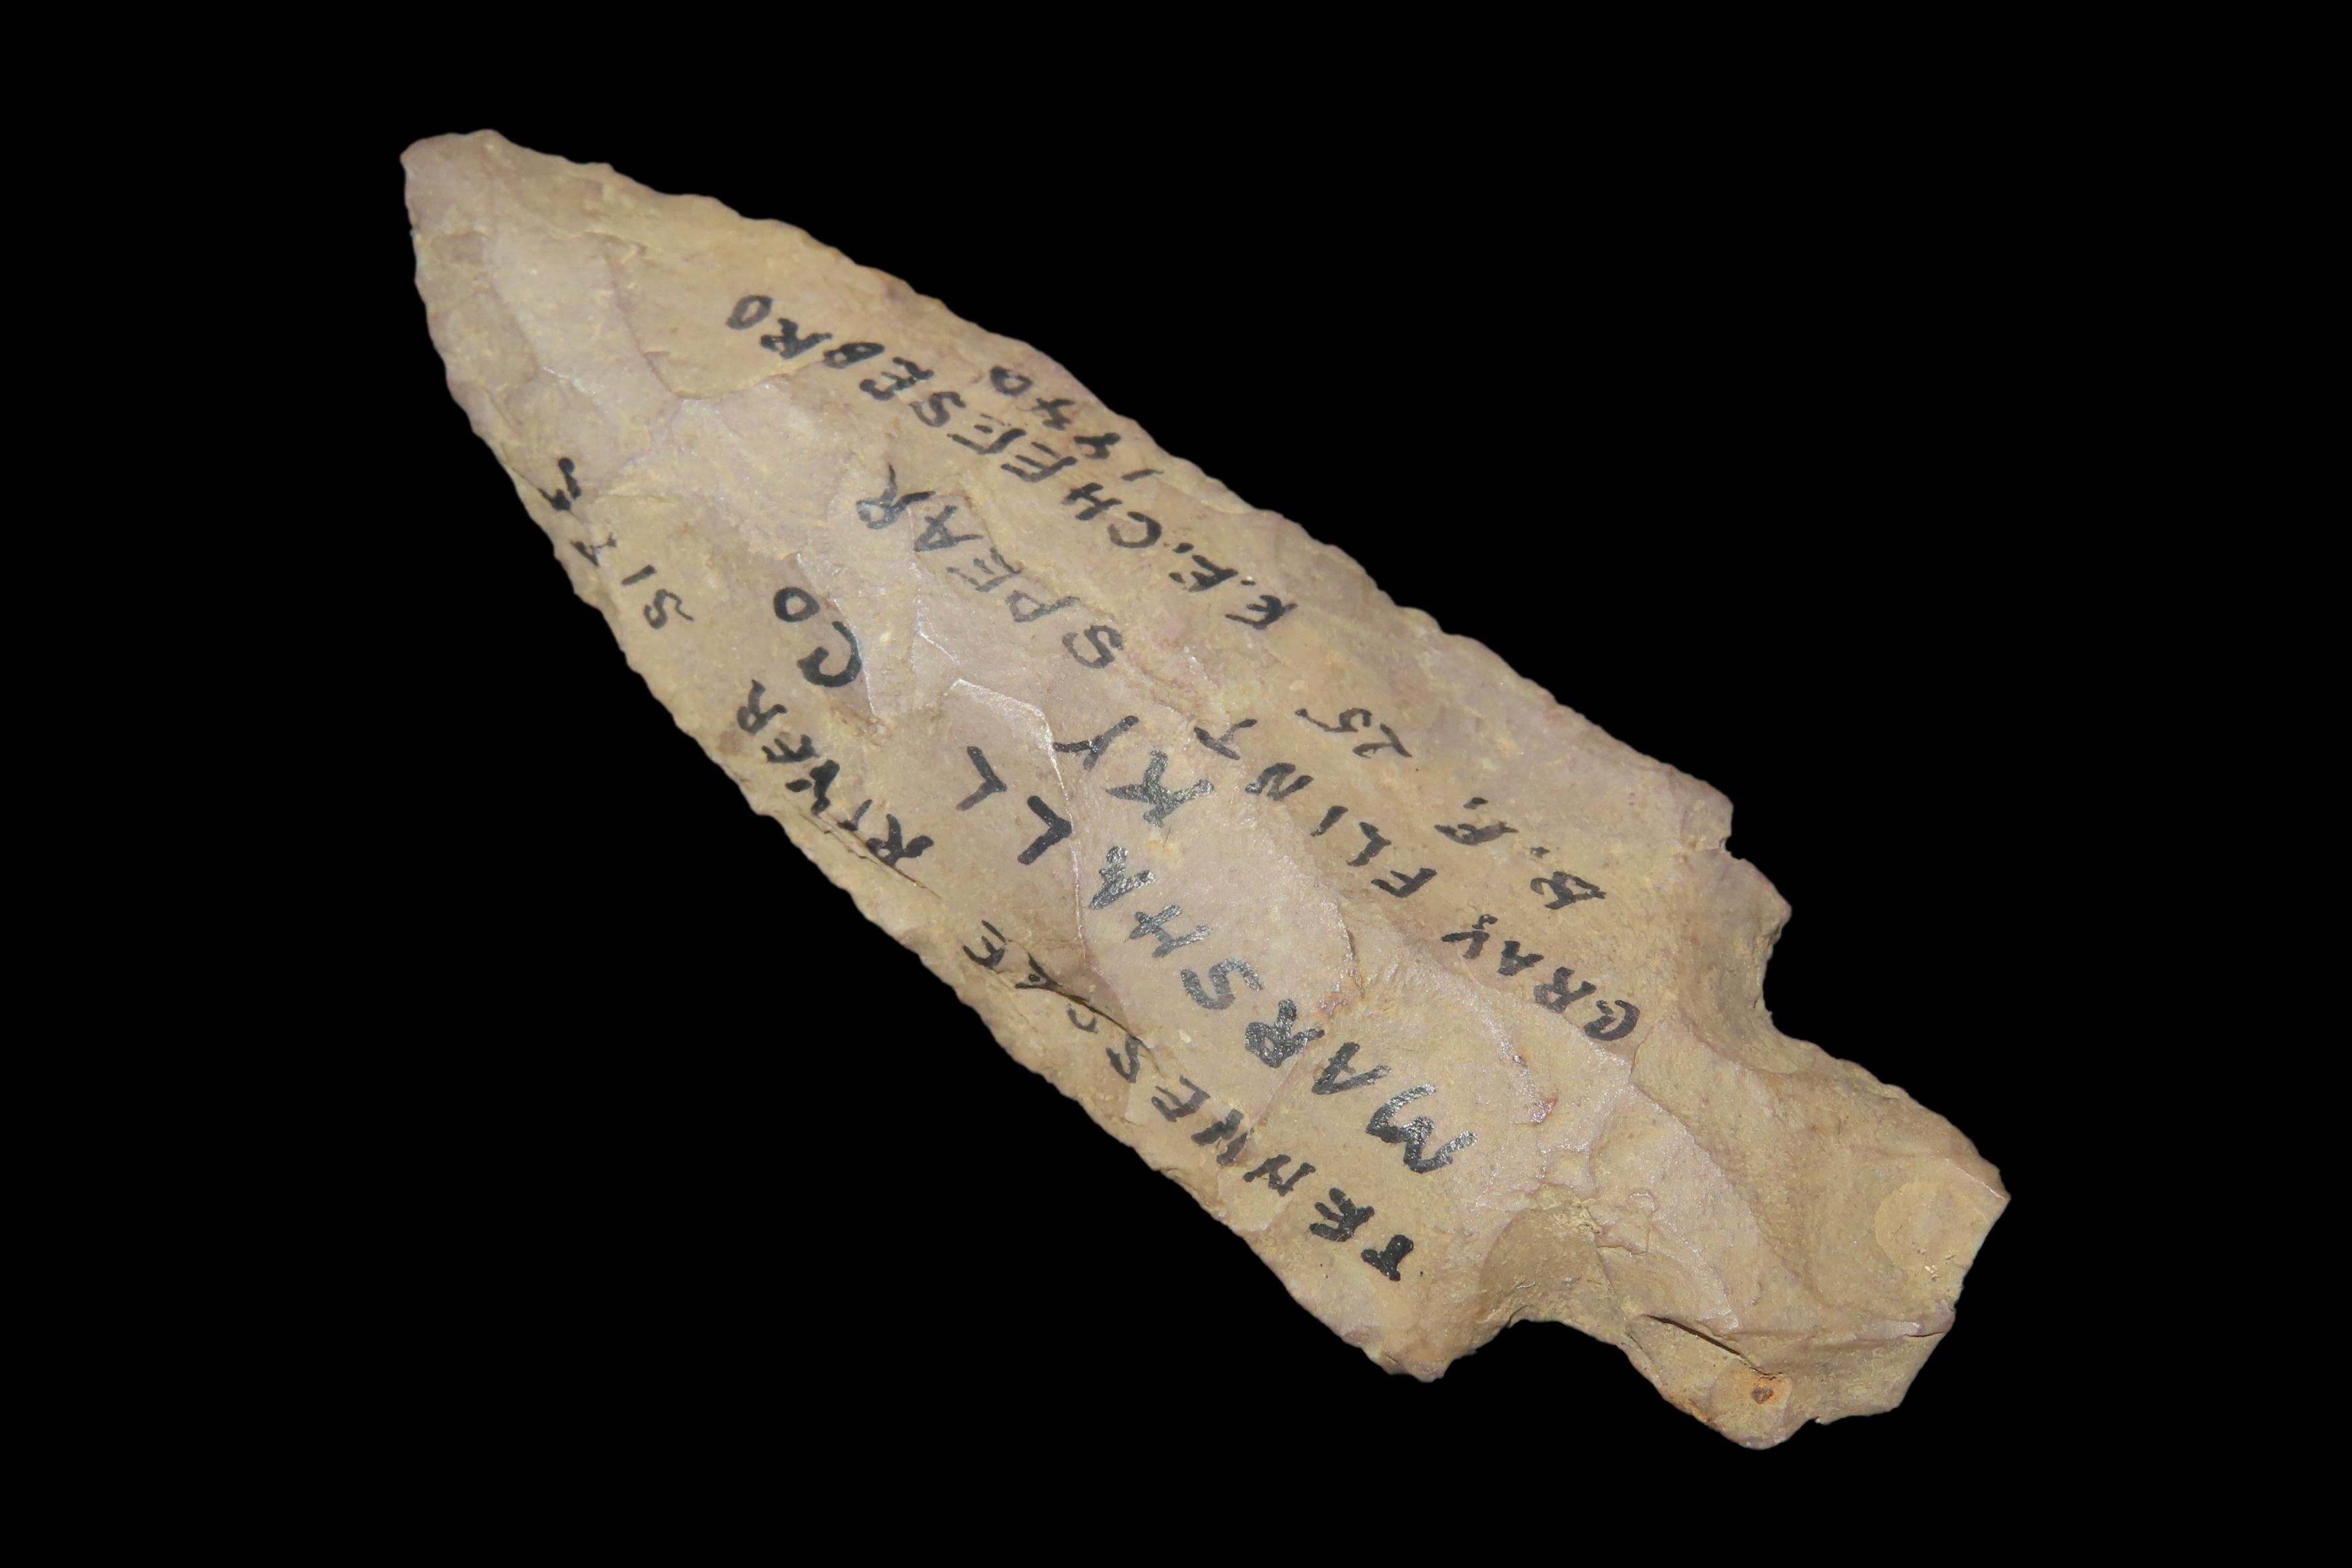 TENNESSEE RIVER SITE
MARSHALL CO
KY
GRAY FLINT SPEAR
B.F. 25 E.F. CHEESEBRO
1940